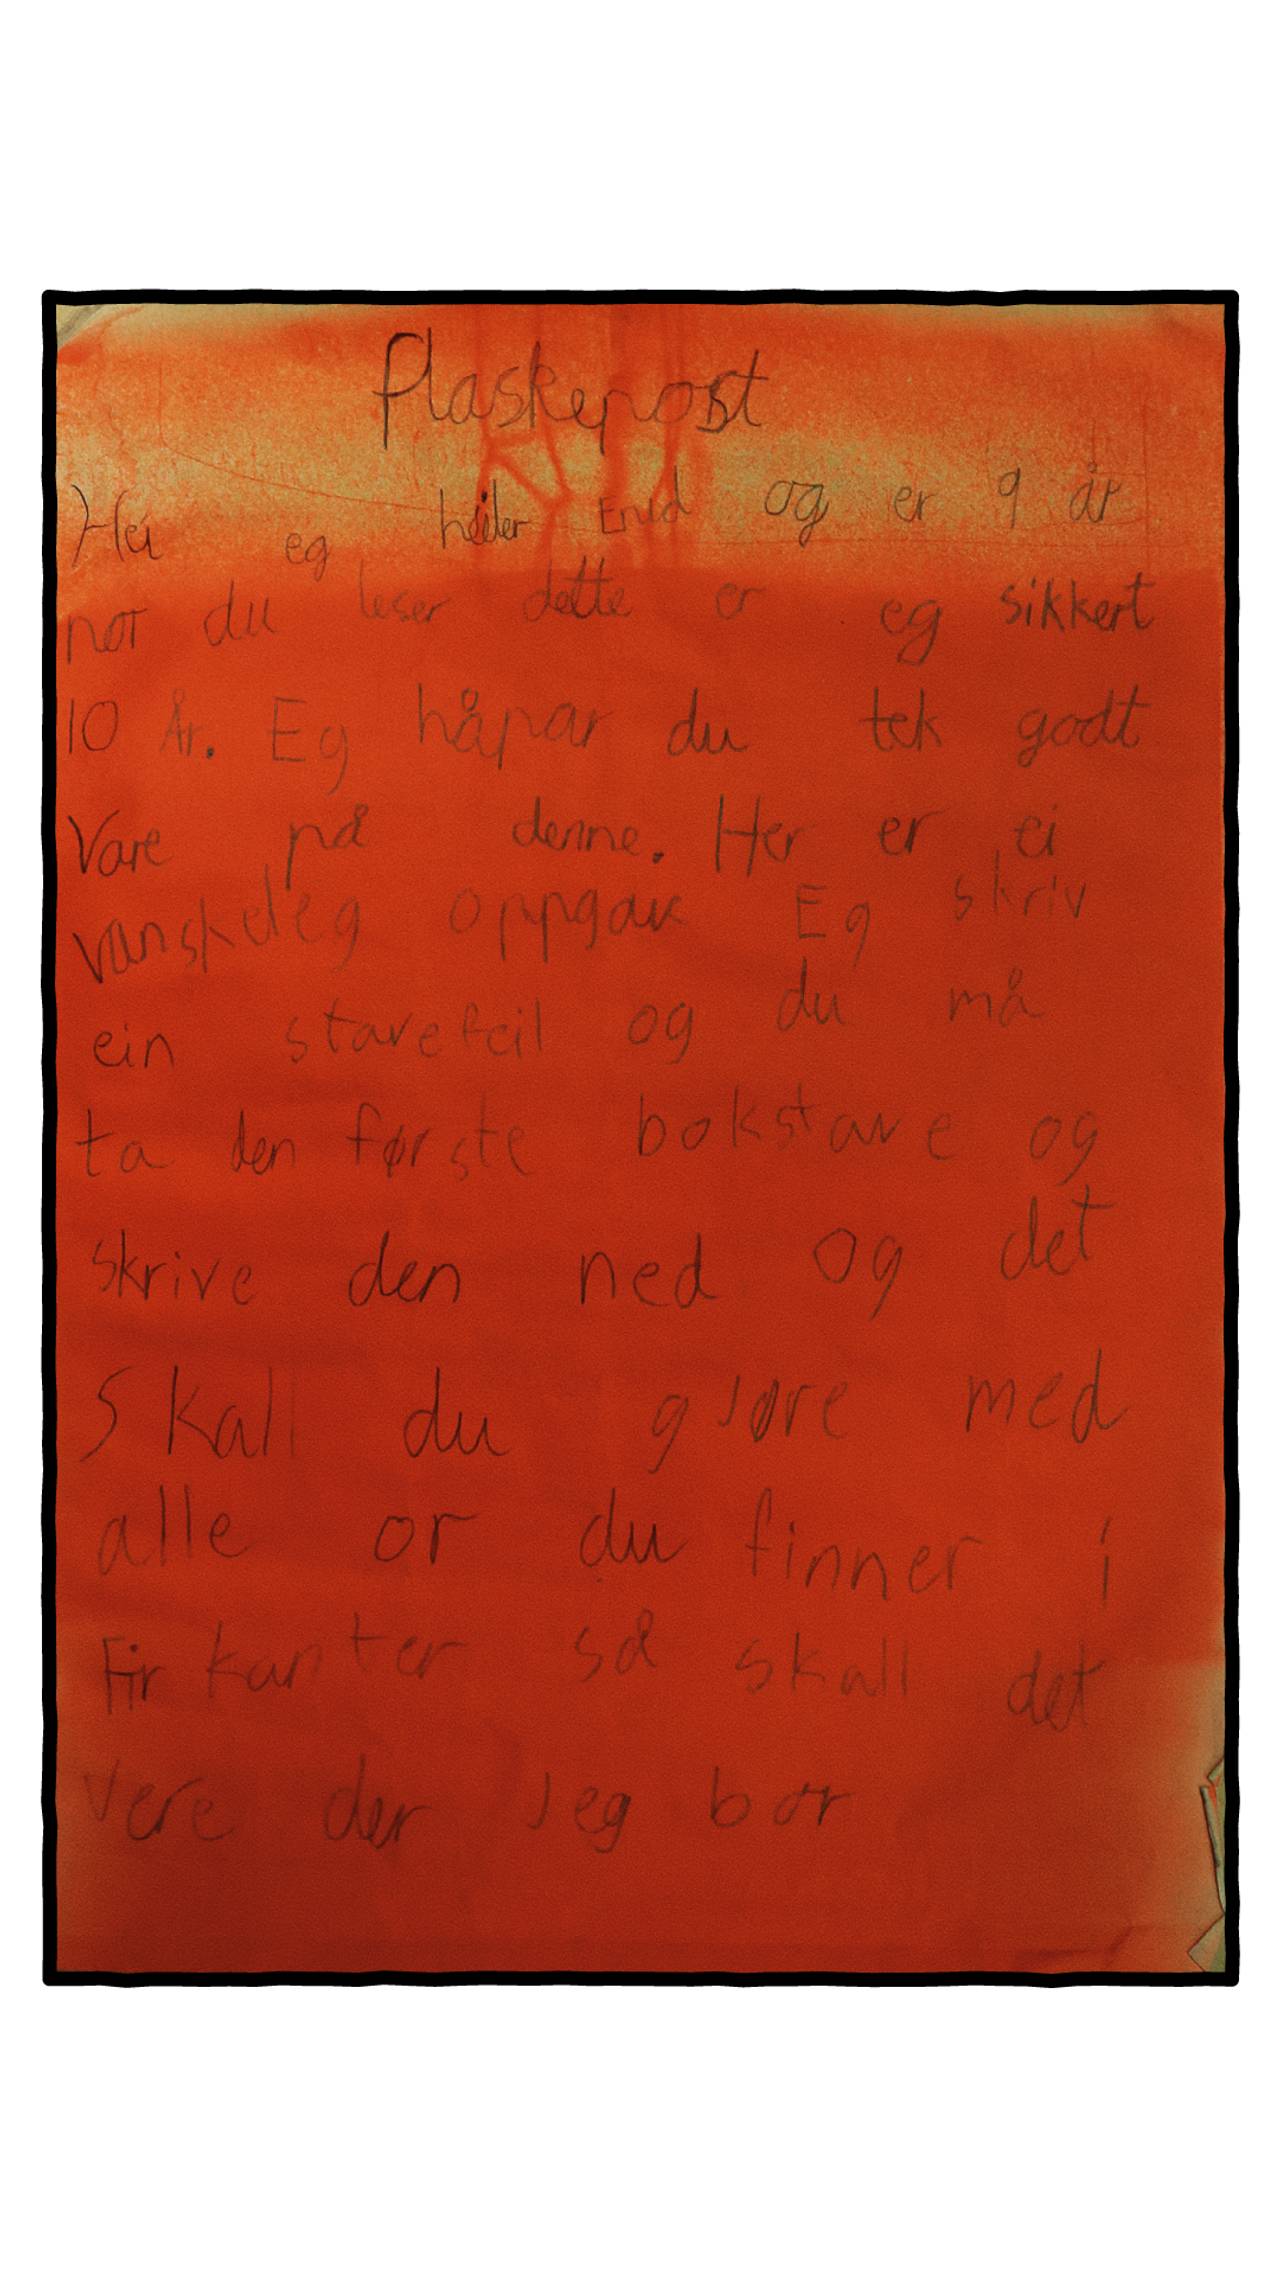 Flaskepost
Hei eg heiter Enid og er 9 år
nor du leser dette er eg sikkert
10 År. Eg håpar du tek godt
Vare på denne. Her er ei
vanskeleg oppgave Eg skriv
ein stavefeil og du må
ta den første bokstave og
skrive den ned og det
Skall du gjøre med
alle or du finner i
Firkanter så skall det
vere der Jeg bor